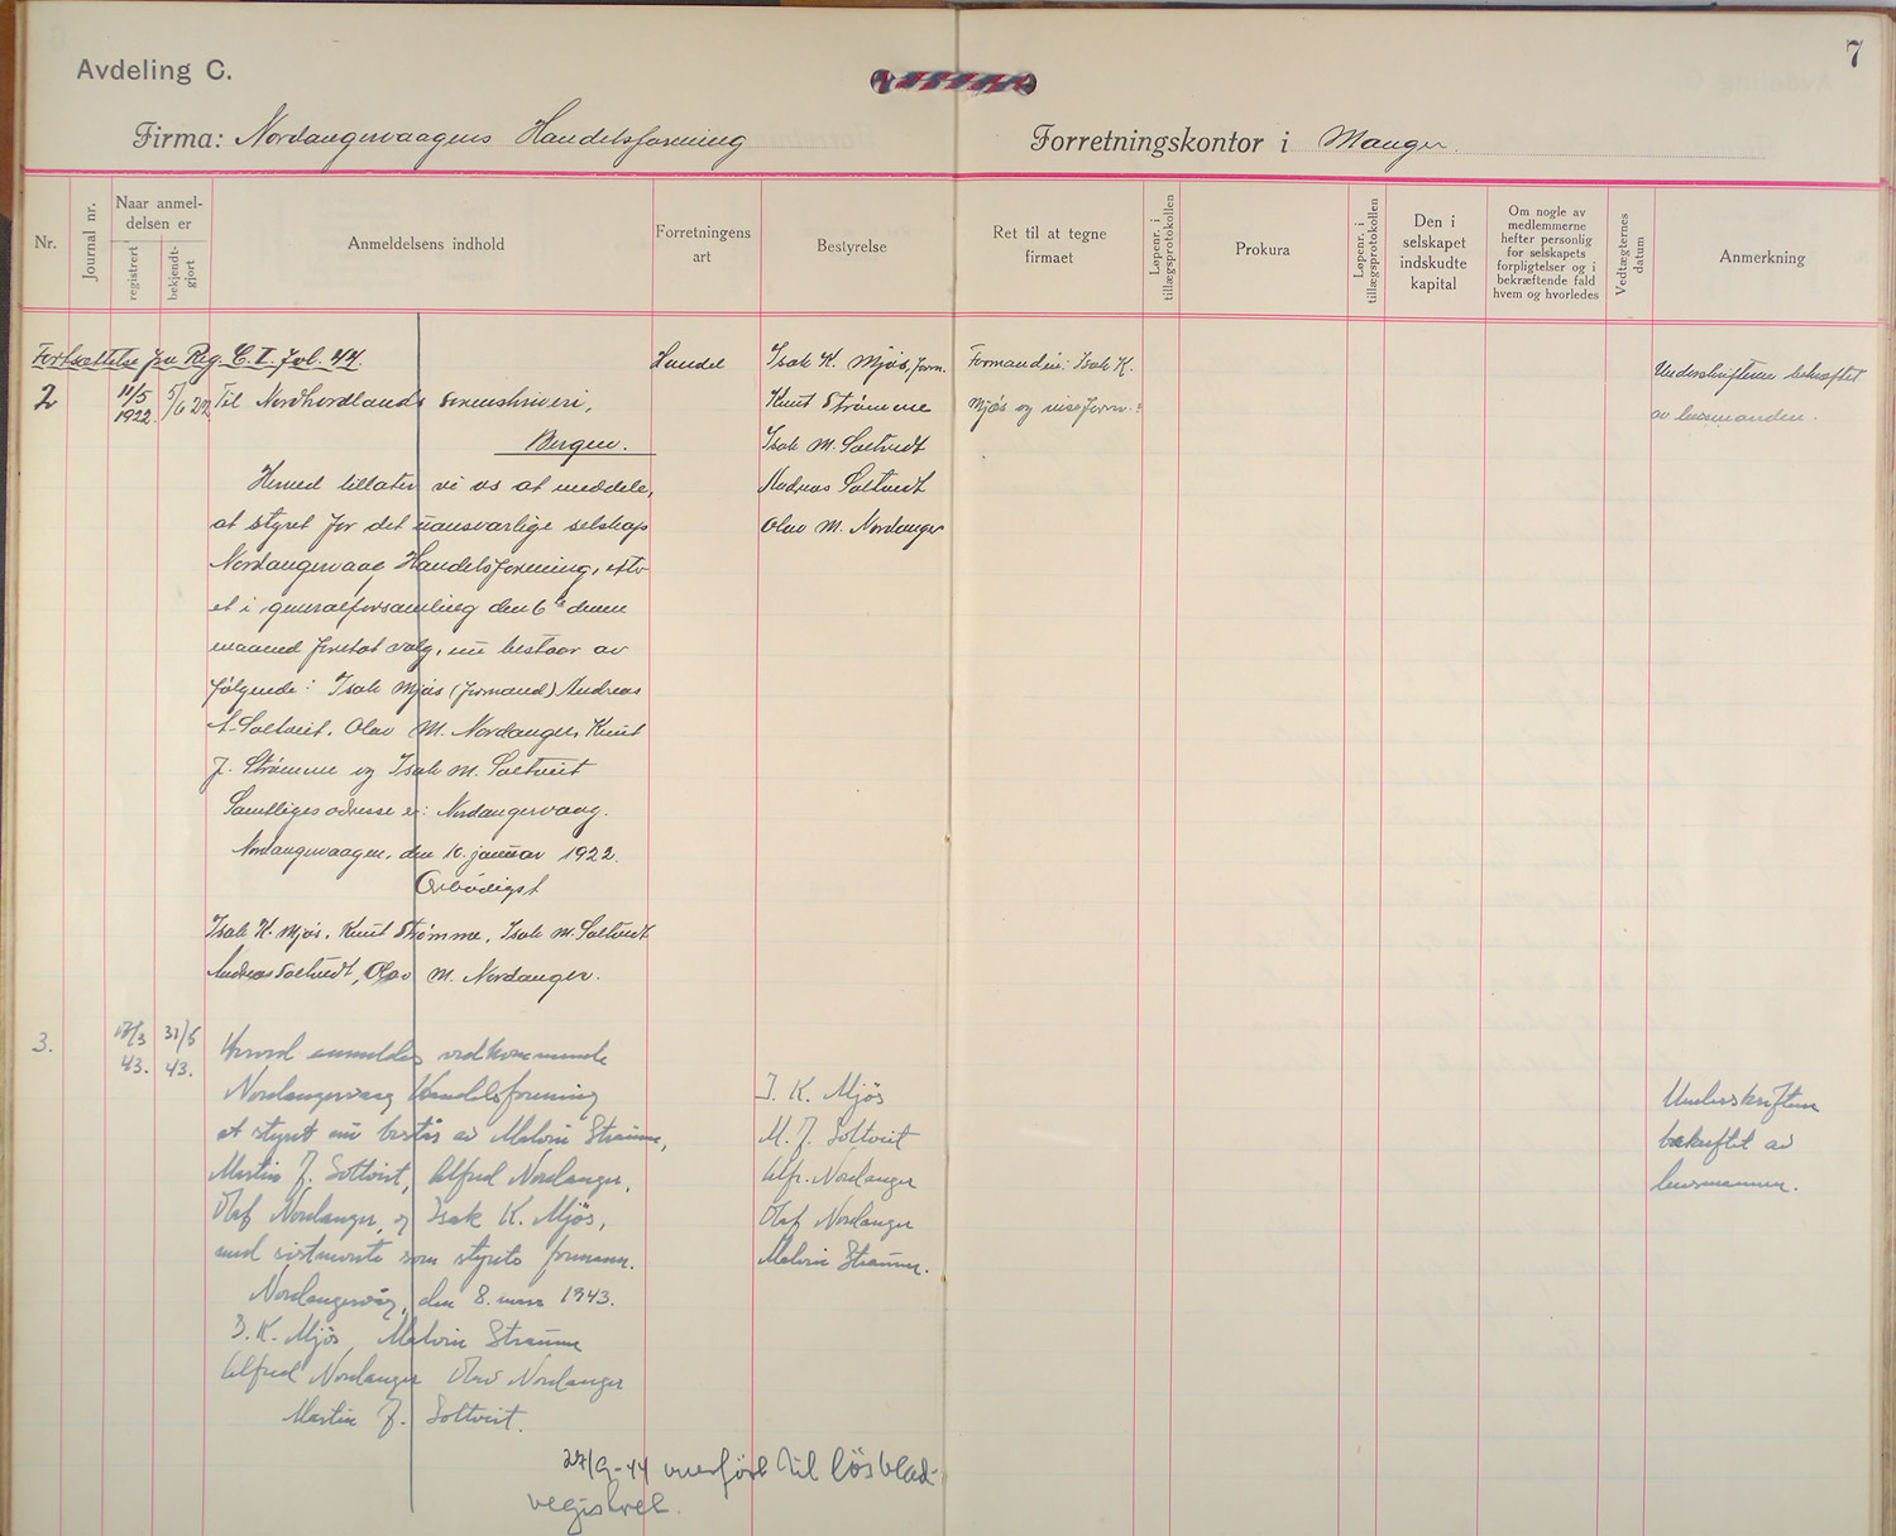 7
Avdeling C.
Firma: Nordangervaagens Handelsforening
Forretningskontor i Manger.
Nr.
Journal nr.
Naar anmel-
delsen er
registrert
bekjendt-
gjort
Anmeldelsens indhold
Forretningens
art
Bestyrelse
Ret til at tegne
firmaet
Løpenr. i
tillægsprotokollen
Prokura
Løpenr. i
tillægsprotokollen
Den i
selskapet
indskudte
kapital
Om nogle av
medlemmerne
hefter personlig
for selskapets
forpligtelser og i
bekræftende fald
hvem og hvorledes
Vedtægternes
datum
Anmerkning
Fortsættelse fra Reg. C. I. fol. 44.
2
11/5
1922.
5/6 22
Til Nordhordlands sorenskriveri,
Bergen.
Herved tillater vi os at meddele,
at styret for det uansvarlige selskap
Nordangervaag Handelsforening, efter
et i generalforsamling den 6te denne
maaned foretat valg, nu bestaar av
følgende: Isak Mjøs (formand) Andreas
A. Soltveit, Olav M. Nordanger, Knut
J. Strømme og Isak M. Soltveit
Samtliges adresse er: Nordangervaag.
Nordangervaagen, den 10. januar 1922.
Ærbødigst
Isak K. Mjøs, Knut Strømme, Isak M. Soltvedt
Andreas Soltvedt, Olav M. Nordanger.
Handel
Isak K. Mjøs, form.
Knut Strømme
Isak M. Soltvedt
Andreas Soltvedt
Olav M. Nordanger
Formanden: Isak K.
Mjøs og viseform.:
Underskrifterne bekræftet
av lensmanden.
3.
17/3
43.
31/5
43.
Herved anmeldes vedkommende
Nordangervaag Handelsforening
at styret nu består av Malvin Straume,
Martin J. Soltveit, Alfred Nordanger,
Olaf Nordanger, og Isak K. Mjös,
med sistnevnte som styrets formann.
Nordangervåg, den 8. mars 1943.
I. K. Mjös, Malvin Straume
Alfred Nordanger Olav Nordanger
Martin J. Soltveit.
I. K. Mjös
M. J. Soltveit
Alfr. Nordanger
Olaf Nordanger
Malvin Straume.
Underskriftene
bekreftet av
lensmannen.
27/9-44 overført til lösblad-
registret.